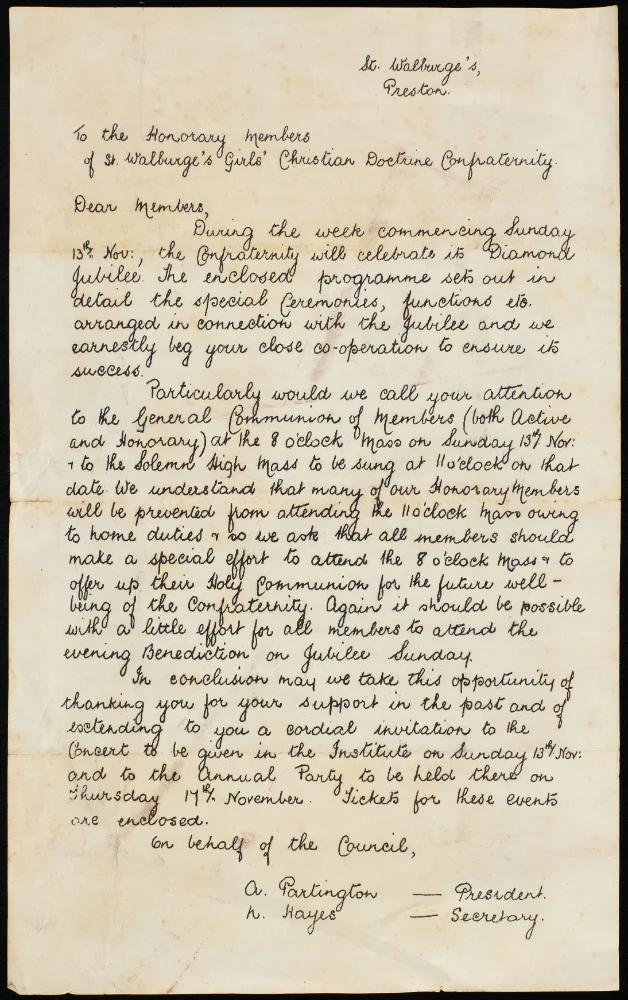 St. Walburge's,
Preston.
To the Honorary Members
of St. Walburge's Girls' Christian Doctrine Confraternity.
Dear Members,
During the week commencing Sunday
13th Nov:, the Confraternity will celebrate its Diamond
Jubilee. The enclosed programme sets out in
detail the special Ceremonies, functions etc.
arranged in connection with the Jubilee and we
earnestly beg your close co-operation to ensure its
success.
Particularly would we call your attention
to the General Communion of Members (both Active
and Honorary) at the 8 o'clock Mass on Sunday 13th Nov:
& to the Solemn High Mass to be sung at 11 o'clock on that
date. We understand that many of our Honorary Members
will be prevented from attending the 11 o'clock Mass owing
to home duties & so we ask that all members should
make a special effort to attend the 8 o'clock Mass & to
offer up their Holy Communion for the future well-
being of the Confraternity. Again it should be possible
with a little effort for all members to attend the
evening Benediction on Jubilee Sunday.
In conclusion may we take this opportunity of
thanking you for your support in the past and of
extending to you a cordial invitation to the
Concert to be given in the Institute on Sunday 13th Nov:
and to the Annual Party to be held there on
Thursday 17th November. Tickets for these events
are enclosed.
On behalf of the Council,
A. Partington — President.
N. Hayes — Secretary.